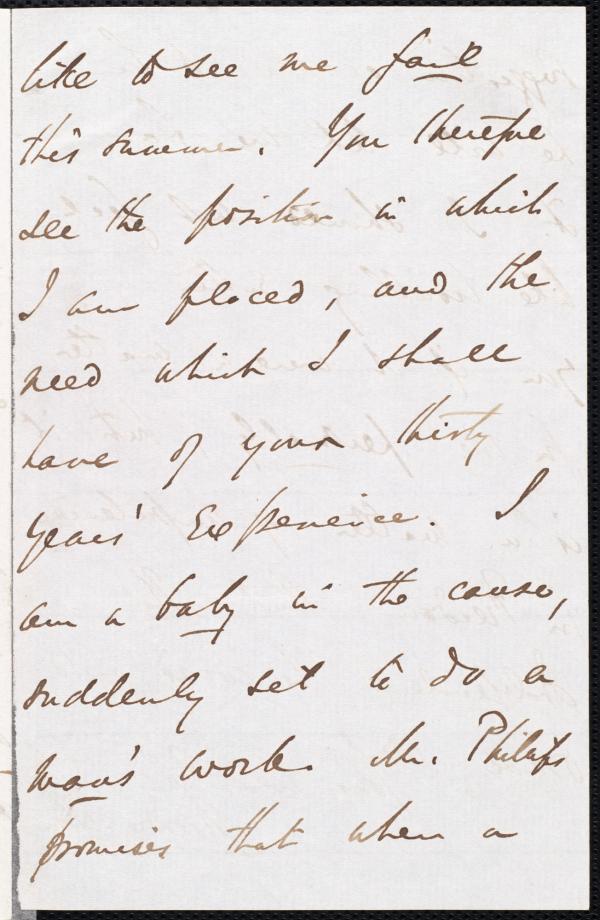 like to see me fail
this summer. You therefore
see the position in which
I am placed, and the
need which I shall
have of your thirty
years' Experience. I
am a baby in the cause,
suddenly set to do a
man's work. Mr. Philips
promises that when a